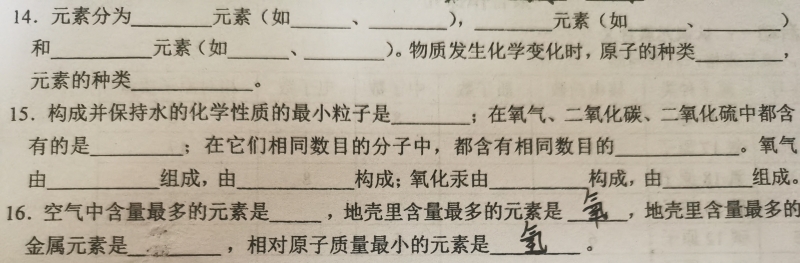 14．元素分为________元素（如______、________），________元素（如______、________）
和________元素（如______、________）。物质发生化学变化时，原子的种类________，
元素的种类____________。
15．构成并保持水的化学性质的最小粒子是________；在氧气、二氧化碳、二氧化硫中都含
有的是________；在它们相同数目的分子中，都含有相同数目的____________。氧气
由__________组成，由__________构成；氧化汞由__________构成，由________组成。
16．空气中含量最多的元素是_____，地壳里含量最多的元素是 氧 ，地壳里含量最多的
金属元素是________，相对原子质量最小的元素是 氢 。